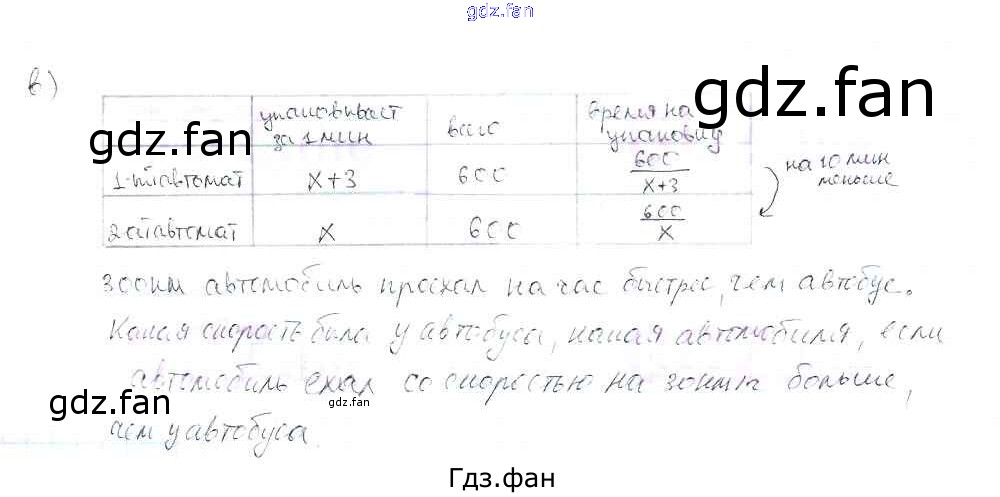 gdz.fan
в)
gdz.fan
упаковывает за 1 мин
всего
время на упаковку
gdz.fan
1-ый автомат x+3 600 600/x+3
на 10 мин меньше
2-ой автомат x 600 600/x
300км автомобиль проехал на час быстрее, чем автобус.
Какая скорость была у автобуса, какая автомобиля, если
автомобиль ехал со скоростью на 30км/ч больше,
gdz.fan
gdz.fan
чем у автобуса.
Гдз.фан